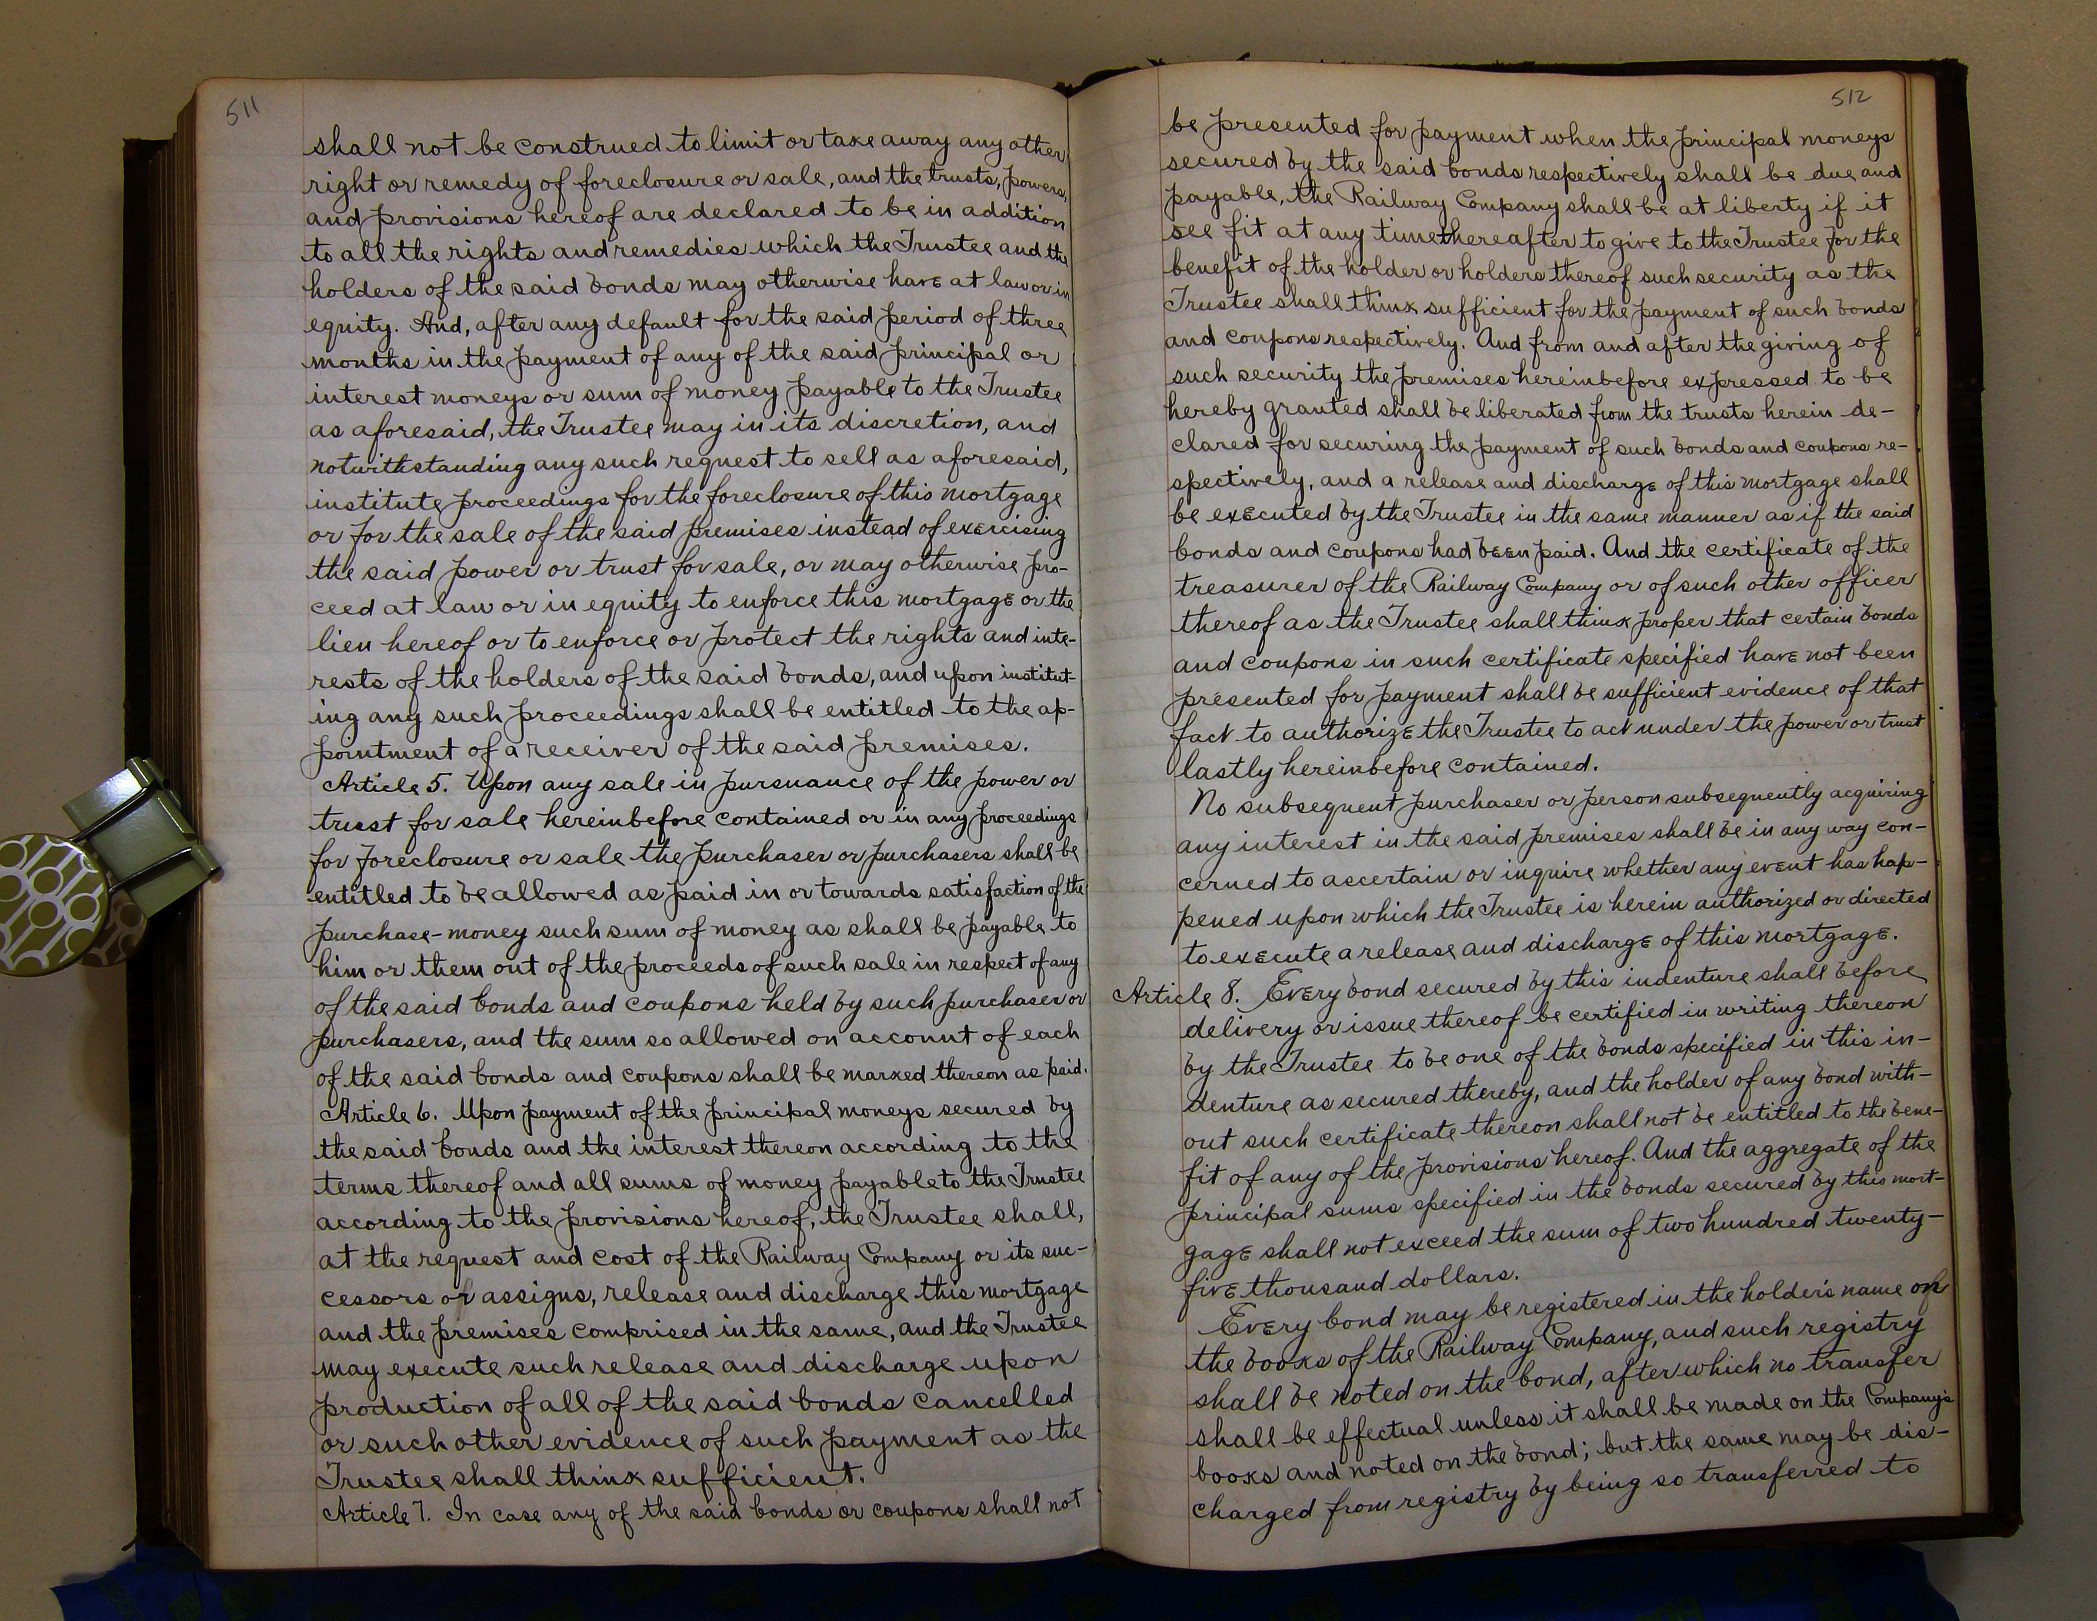 511
shall not be construed to limit or take away any other
right or remedy of foreclosure or sale, and the trusts, powers,
and provisions hereof are declared to be in addition
to all the rights and remedies which the Trustee and the
holders of the said bonds may otherwise have at law or in
equity. And, after any default for the said period of three
months in the payment of any of the said principal or
interest moneys or sum of money payable to the Trustee
as aforesaid, the Trustee may in its discretion, and
notwithstanding any such request to sell as aforesaid,
institute proceedings for the foreclosure of this mortgage
or for the sale of the said premises instead of exercising
the said power or trust for sale, or may otherwise pro-
ceed at law or in equity to enforce this mortgage or the
lien hereof or to enforce or protect the rights and inte-
rests of the holders of the said bonds, and upon institut-
ing any such proceedings shall be entitled to the ap-
pointment of a receiver of the said premises.
Article 5. Upon any sale in pursuance of the power or
trust for sale hereinbefore contained or in any proceedings
for foreclosure or sale the purchaser or purchasers shall be
entitled to be allowed as paid in or towards satisfaction of the
purchase-money such sum of money as shall be payable to
him or them out of the proceeds of such sale in respect of any
of the said bonds and coupons held by such purchaser or
purchasers, and the sum so allowed on account of each
of the said bonds and coupons shall be marked thereon as paid.
Article 6. Upon payment of the principal moneys secured by
the said bonds and the interest thereon according to the
terms thereof and all sums of money payable to the Trustee
according to the provisions hereof, the Trustee shall,
at the request and cost of the Railway Company or its suc-
cessors or assigns, release and discharge this mortgage
and the premises comprised in the same, and the Trustee
may execute such release and discharge upon
production of all of the said bonds cancelled
or such other evidence of such payment as the
Trustee shall think sufficient.
Article 7. In case any of the said bonds or coupons shall not
512
be presented for payment when the principal moneys
secured by the said bonds respectively shall be due and
payable, the Railway Company shall be at liberty if it
see fit at any time thereafter to give to the Trustee for the
benefit of the holder or holders thereof such security as the
Trustee shall think sufficient for the payment of such bonds
and coupons respectively. And from and after the giving of
such security the premises hereinbefore expressed to be
hereby granted shall be liberated from the trusts herein de-
clared for securing the payment of such bonds and coupons re-
spectively, and a release and discharge of this mortgage shall
be executed by the Trustee in the same manner as if the said
bonds and coupons had been paid. And the certificate of the
treasurer of the Railway Company or of such other officer
thereof as the Trustee shall think proper that certain bonds
and coupons in such certificate specified have not been
presented for payment shall be sufficient evidence of that
fact to authorize the Trustee to act under the power or trust
lastly hereinbefore contained.
No subsequent purchaser or person subsequently acquiring
any interest in the said premises shall be in any way con-
cerned to ascertain or inquire whether any event has hap-
pened upon which the Trustee is herein authorized or directed
to execute a release and discharge of this mortgage.
Article 8. Every bond secured by this indenture shall before
delivery or issue thereof be certified in writing thereon
by the Trustee to be one of the bonds specified in this in-
denture as secured thereby, and the holder of any bond with-
out such certificate thereon shall not be entitled to the bene-
fit of any of the provisions hereof. And the aggregate of the
principal sums specified in the bonds secured by this mort-
gage shall not exceed the sum of two hundred twenty-
five thousand dollars.
Every bond may be registered in the holder's name on
the books of the Railway Company, and such registry
shall be noted on the bond, after which no transfer
shall be effectual unless it shall be made on the Company's
books and noted on the bond; but the same may be dis-
charged from registry by being so transferred to